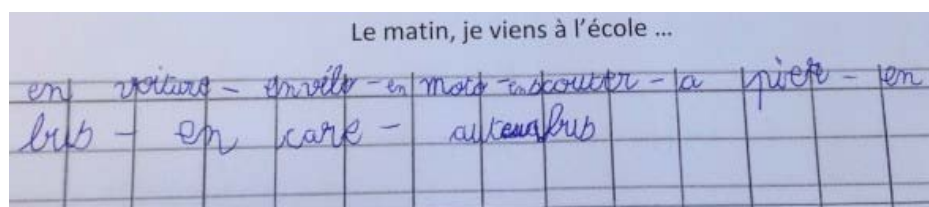 Le matin, je viens à l'école ...
en voiture - en vélo - en moto - en scouter - a piete - en
bus - en care - autensbus